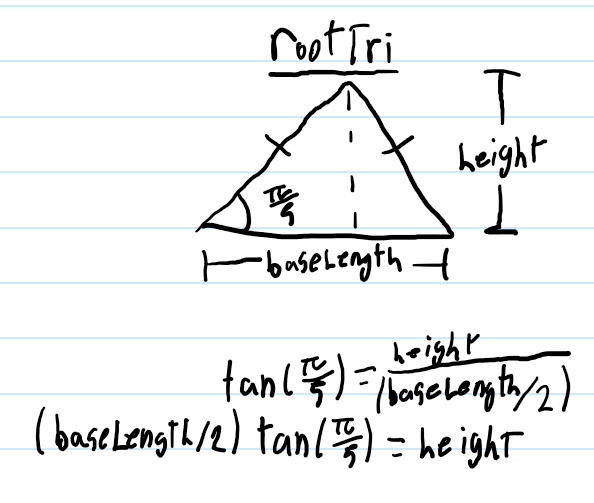 rootTri
height
π/5
baseLength
tan(π/5) = height/(baseLength/2)
(baseLength/2) tan(π/5) = height